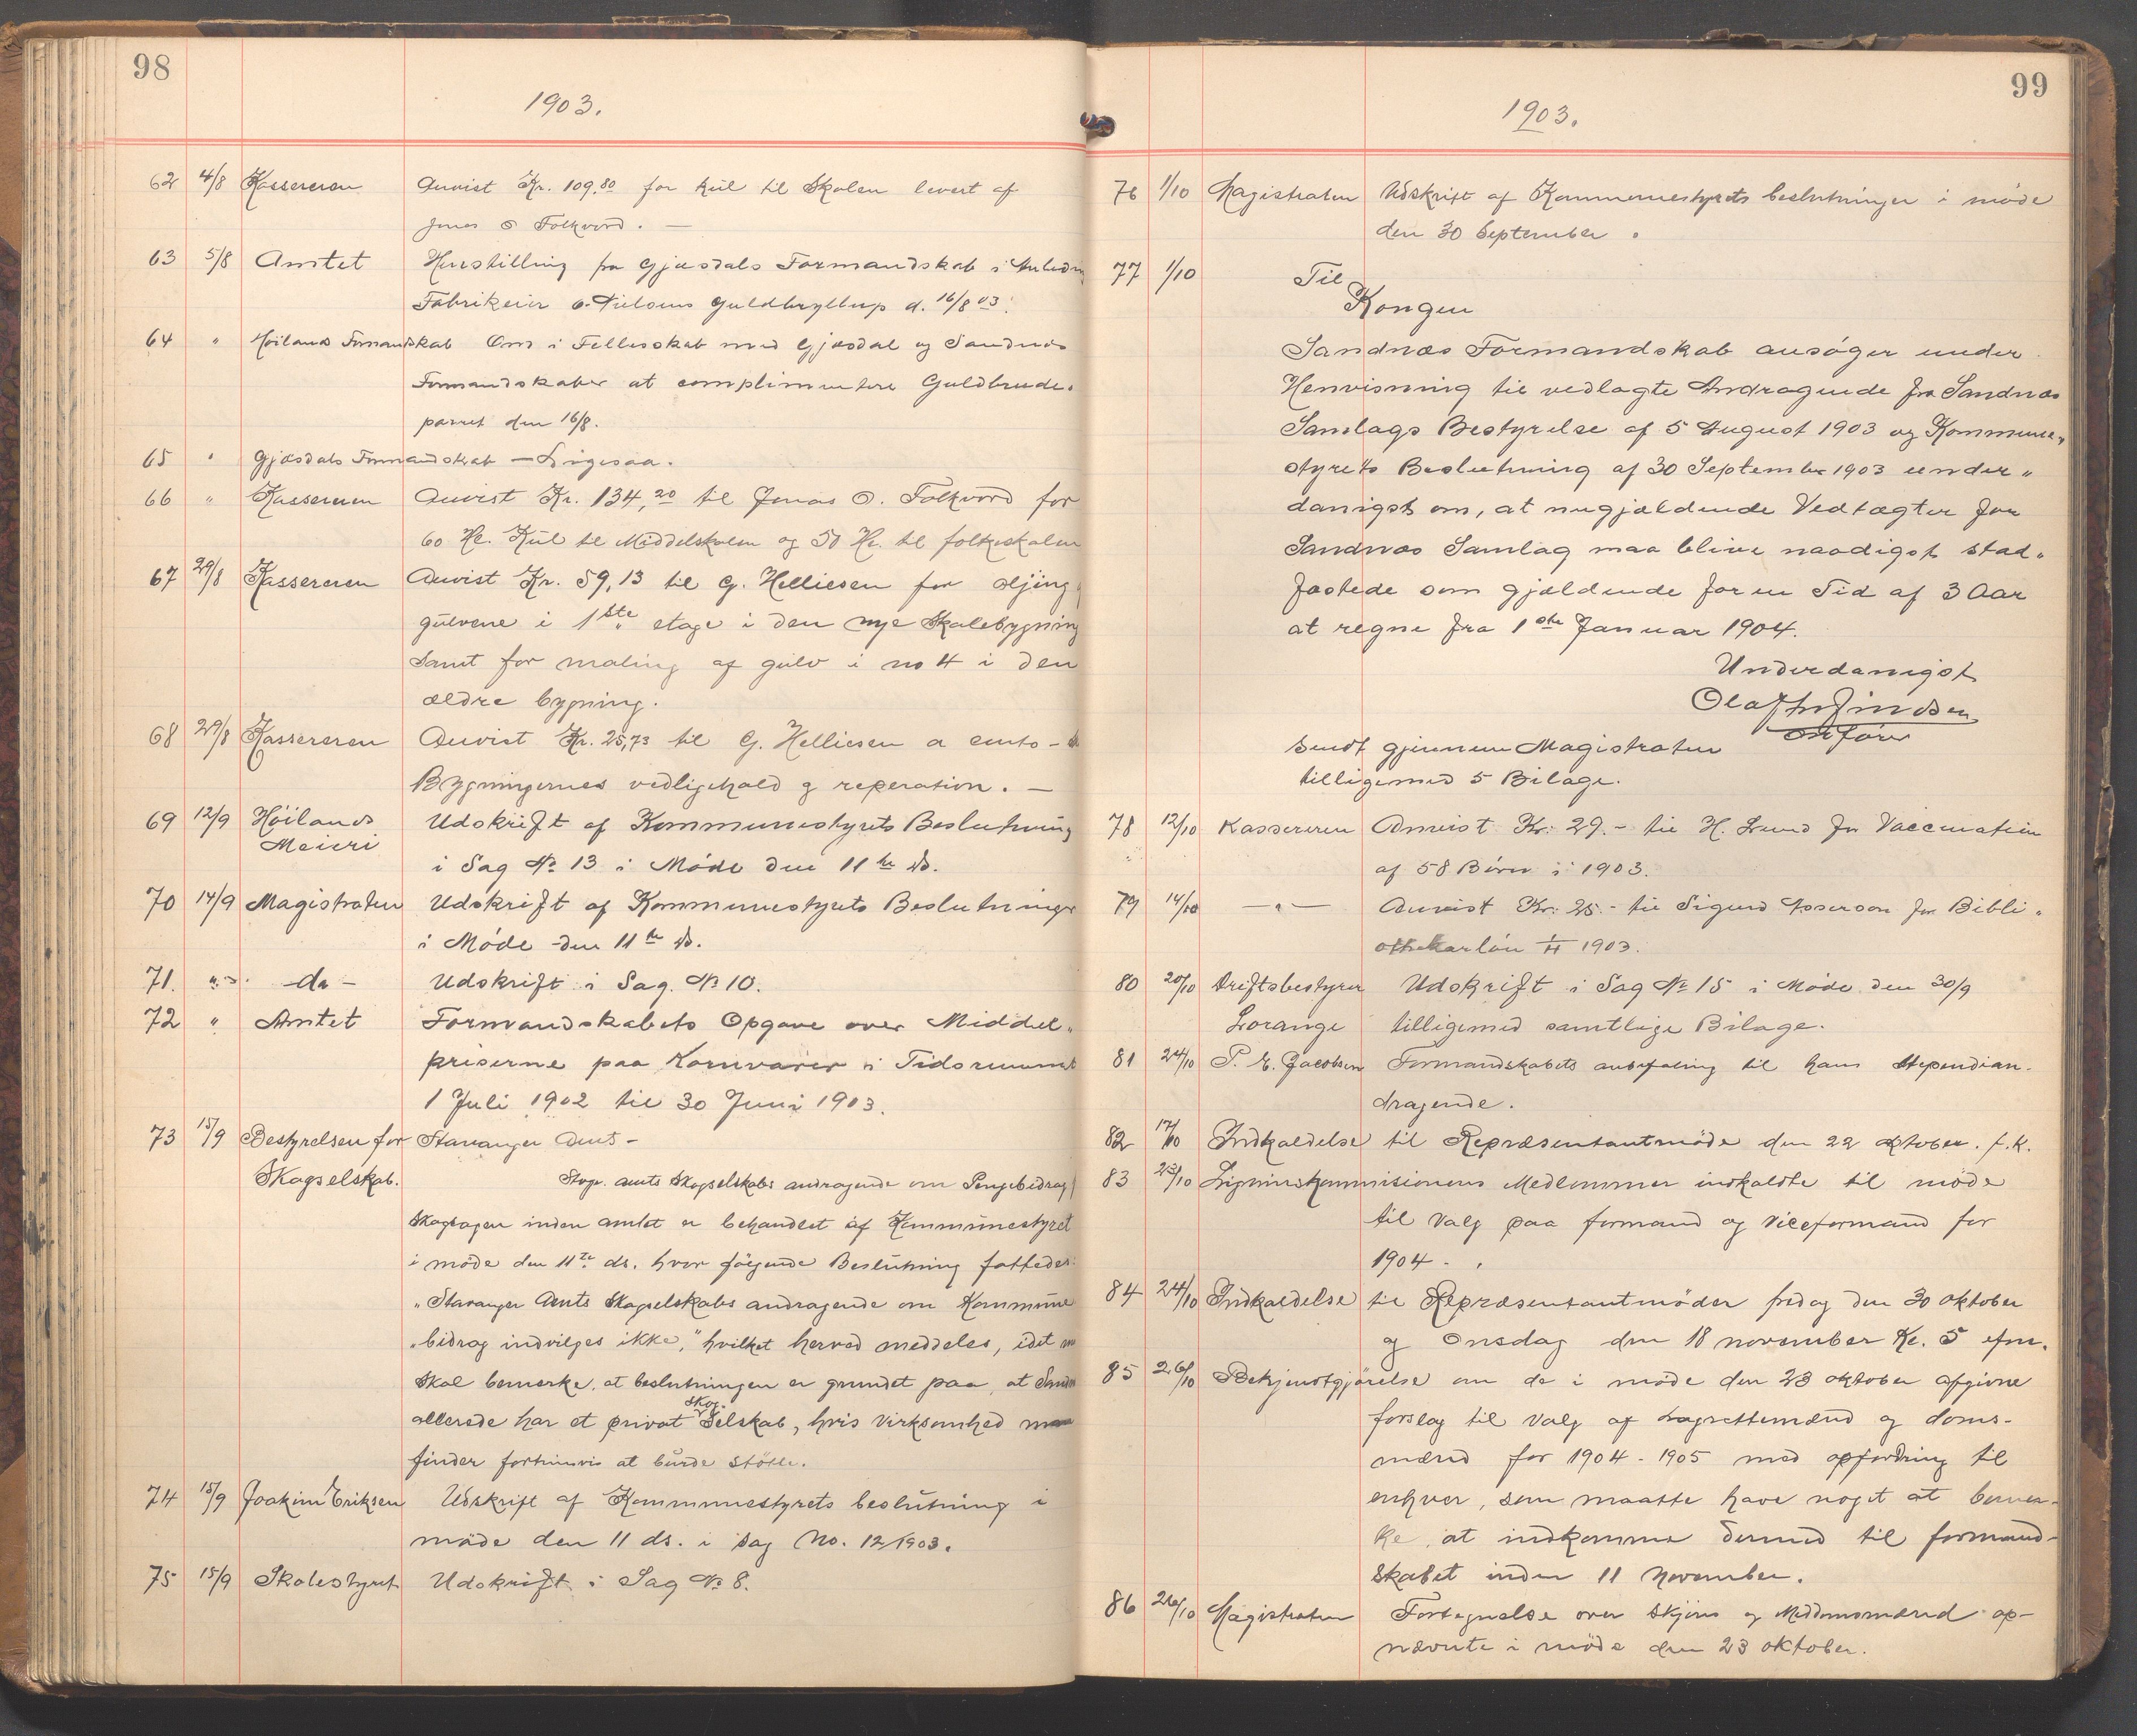 98
1903.
62 4/8 Kassereren Anvist Kr. 109.80 for kul til Skolen levert af
Jonas O Folkvord. —
63 5/8 Amtet Henstilling fra Gjæsdals Formandskab i Anledn
Fabrikeier O. Nielsens Guldbryllup d. 16/8 03.
64 " Höilands Formandskab Om i Fellesskab med Gjæsdal og Sandnæs
Formandskaber at complimentere Guldbrude-
parret den 16/8.
65 " Gjæsdals Formandskab — Ligesaa.
66 " Kassereren Anvist Kr. 134,20 til Jonas O. Folkvord for
60 Hl. Kul til Middelskolen og 50 Hl. til folkeskolen
67 29/8 Kassereren Anvist Kr. 59,13 til G. Helliesen for oljing
gulvene i 1ste etage i den nye Skolebygning
samt for maling af gulv i no 4 i den
ældre bygning.
68 29/8 Kassereren Anvist Kr. 25,73 til G. Helliesen a conto -
Bygningernes vedligehold og reperation. —
69 12/9 Höilands Meieri Udskrift af Kommunestyrets Beslutning
i Sag № 13 i Möde den 11te ds.
70 14/9 Magistraten Udskrift af Kommunestyrets Beslutninger
i Möde den 11te ds.
71. " - do - Udskrift i Sag. № 10.
72 " Amtet Formandskabets Opgave over Middel-
priserne paa Kornvarer i Tidsrummet
1 Juli 1902 til 30 Juni 1903.
73 15/9 Bestyrelsen for Stavanger Amts -
Skogselskab. Stvgr. amts Skogselskabs andragende om Pengebidrag
Skogsagen inden amtet er behandlet af Kommunestyret
i möde den 11te ds. hvor fölgende Beslutning fattedes:
"Stavanger Amts Skogselskabs andragende om Kommune
"bidrag indvilges ikke," hvilket herved meddeles, idet m
skal bemerke, at beslutningen er grundet paa, at Sandn
allerede har et privat Skog-Selskab, hvis Virksomhed man
finder fortrinsvis at burde stötte.
74 15/9 Joakim Eriksen Udskrift af Kommunestyrets beslutning i
möde den 11 ds. i sag No. 12/1903.
75 15/9 Skolestyret Udskrift i Sag № 8.
99
1903.
76 1/10 Magistraten Udskrift af Kommunestyrets beslutninger i möde
den 30 September.
77 1/10 Til
Kongen
Sandnæs Formandskab ansöger under
Henvisning til vedlagte Andragende fra Sandnæs
Samlags Bestyrelse af 5 August 1903 og Kommune-
styrets Beslutning af 30 September 1903 under-
danigst om, at nugjældende Vedtægter for
Sandnæs Samlag maa blive naadigst stad-
fæstede som gjældende for en Tid af 3 Aar
at regne fra 1ste Januar 1904.
Underdanigst
Olaf
Ordförer
Sendt gjennem Magistraten
tilligemed 5 Bilage.
78 12/10 Kassereren Anvist Kr: 29.- til H. Lund for Vaccination
af 58 Börn i 1903.
79 14/10 —"— Anvist Kr: 25.- til Sigurd Asserson for Bibli-
othekarlön 1903.
80 20/10 Driftsbestyrer Udskrift i Sag № 15 i Möde den 30/9
Lorange tilligemed samtlige Bilage.
81 24/10 P. E. Jacobsen Formandskabets anbefaling til hans Stipendian-
dragende.
82 17/10 Indkaldelse til Repræsentantmöde den 22 oktober. f.k.
83 23/10 Ligninskommisionens Medlemmer indkaldte til möde
til valg paa formand og viceformand for
1904.
84 24/10 Indkaldelse til Repræsentantmöder fredag den 30 oktober
og onsdag den 18 november kl. 5 efm.
85 26/10 Bekjendtgjörelse om de i möde den 23 oktober afgivne
forslag til valg af Lagrettemænd og doms-
mænd for 1904-1905 med opfordring til
enhver, som maatte have noget at bemer-
ke, at indkomme dermed til formand-
skabet inden 11 November.
86 26/10 Magistraten Fortegnelse over Skjöns og Meddomsmænd op-
nævnte i möde den 23 oktober.